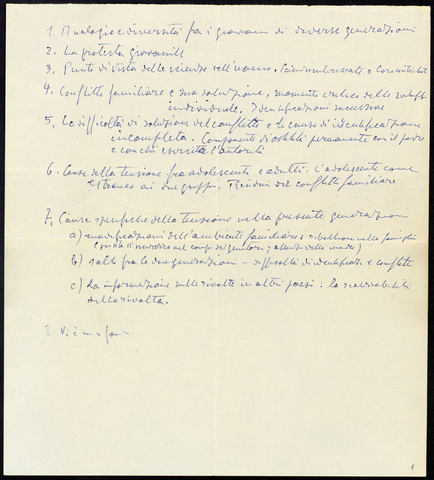 1. Analogie e diversità fra i giovani di diverse generazioni
2. La protesta giovanile
3. Punto di vista delle scienze dell'uomo.
4. Conflitto familiare e sua soluzione, momento critico dello sviluppo
individuale. Identificazioni
5. Le difficoltà di soluzione del conflitto e le cause di identificazione
incompleta. Componente di ostilità permanente con il padre
e con chi esercita l'autorità
6. Cause della tensione fra adolescenti e adulti. L'adolescente come
estraneo ai due gruppi. del conflitto familiare
7. Cause specifiche della tensione nella presente generazione
a) modificazioni dell'ambiente familiare e ribellione nelle famiglie
b) salto fra le due generazioni - difficoltà di identificarsi e conflitto
c) La informazione sulle rivolte in altri paesi: la
della rivolta.
1